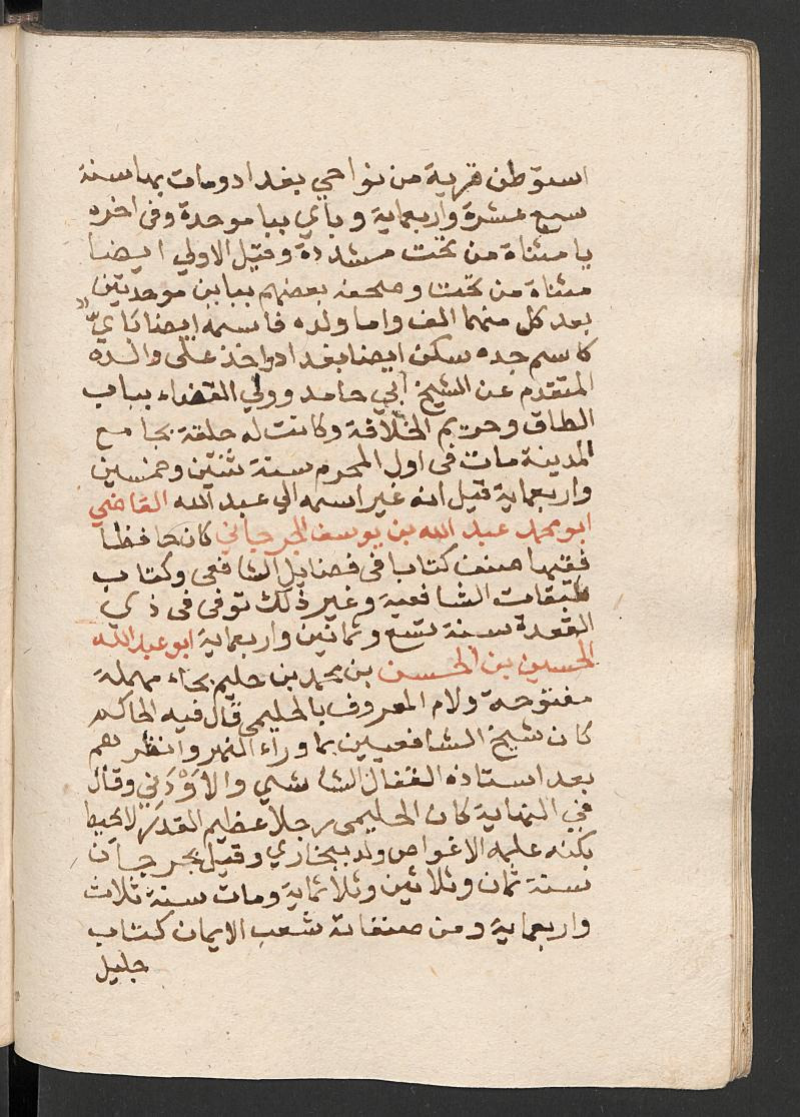 استوطن قرية من نواحي بغداد ومات بها سنة
سبع عشرة واربعماية وباي ببا موحدة وفى اخره
يا مثناة من تحت مشددة وقيل الاولي ايضا
مثناة من تحت وصحفه بعضهم ببابين موحدتين
بعد كل منهما الف واما ولده فاسمه ايضا باي
كاسم جده سكن ايضا بغداد واخذ على والده
المتقدم عن الشيخ أبي حامد وولي القضاء بباب
الطاق وحريم الخلافة وكانت له حلقة بجامع
المدينة مات فى اول المحرم سنة ثنتين وخمسين
واربعماية قيل انه غير اسمه الي عبد الله القاضي
ابو محمد عبد الله بن يوسف الجرجاني كان حافظا
فقيها صنف كتابا فى فضايل الشافعى وكتاب
طبقات الشافعية وغير ذلك توفى فى ذي
القعدة سنة تسع وثمانين واربعماية ابو عبد الله
الحسين بن الحسن بن محمد بن حليم بحاء مهملة
مفتوحة ولام المعروف بالحليمى قال فيه الحاكم
كان شيخ الشافعيين بما وراء النهر وانظرهم
بعد استاذه القفال الشاشي والأوْدَني وقال
في النهاية كان الحليمى رجلا عظيم القدر لا يحيط
بكنه علمه الا غواص ولد ببخاري وقيل بجرجان
سنة ثمان وثلاثين وثلاثماية ومات سنة ثلاث
واربعماية ومن مصنفاته شعب الايمان كتاب
جليل